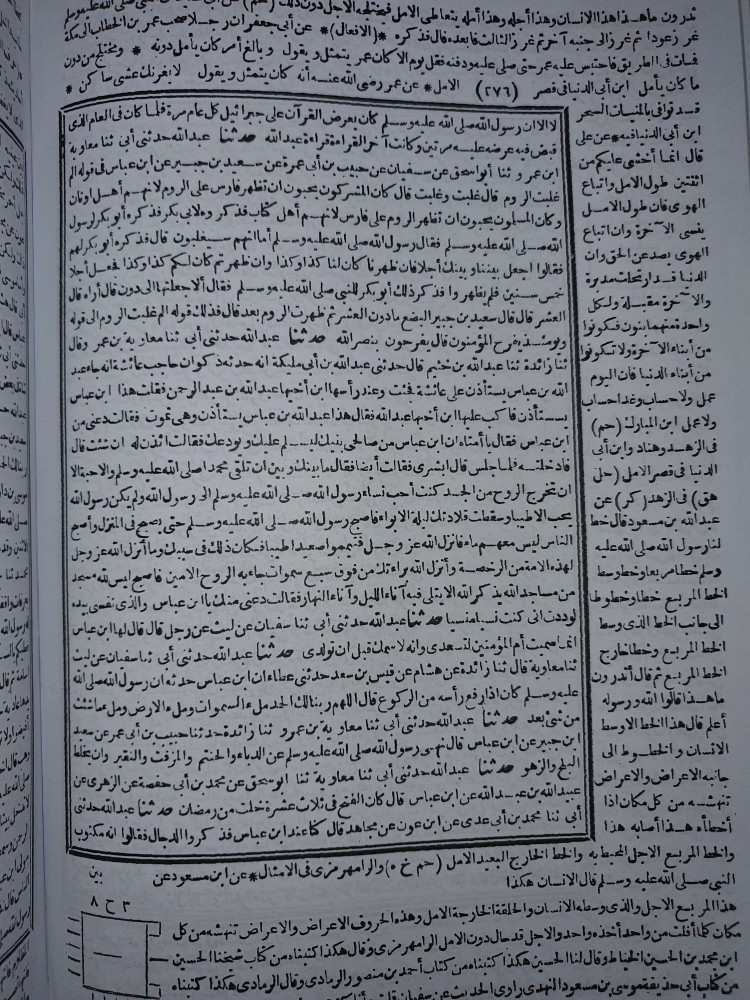 تدرون ما هذا هذا الانسان وهذا أجله وهذا أمله يتعاطى الامل فيختلجه الاجل دون ذلك (حم)
غرز عودا ثم غرز الى جنبه آخر ثم غرز الثالث فابعده قال فذكره
كان يتمثل ويقول وبالغ أمر كان يأمل دونه * ومختلج من دون
ما كان يأمل ابن أبي الدنيا في قصر (٢٧٦) الامل * عن عمر رضى الله عنه أنه كان يتمثل ويقول لا يغرنك عشى ساكن *
قد توافى بالمنيات السحر
ابن أبي الدنيا فيه * عن على
قال انما أخشى عليكم من
اثنتين طول الامل واتباع
الهوى فان طول الامل
ينسى الآخرة وان اتباع
الهوى يصد عن الحق وان
الدنيا قد ارتحلت مدبرة
والآخرة مقبلة ولكل
واحدة منهما بنون فكونوا
من أبناء الآخرة ولا تكونوا
من أبناء الدنيا فان اليوم
عمل ولا حساب وغدا حساب
ولا عمل ابن المبارك (حم)
فى الزهد وهناد وابن أبى
الدنيا فى قصر الامل (حل
هق) فى الزهد (كر) عن
عبد الله بن مسعود قال خط
لنا رسول الله صلى الله عليه
وسلم خطا مربعا وخط وسط
الخط المربع خطا وخطوطا
الى جانب الخط الذى وسط
الخط المربع وخطا خارج
الخط المربع ثم قال أتدرون
ما هذا قالوا الله ورسوله
أعلم قال هذا الخط الاوسط
الانسان والخطوط الى
جانبه الاعراض والاعراض
تنهشه من كل مكان اذا
أخطأه هذا أصابه هذا
لا الا ان رسول الله صلى الله عليه وسلم كان يعرض القرآن على جبرائيل كل عام مرة فلما كان فى العام الذى
قبض فيه عرضه عليه مرتين وكانت آخر القراءة قراءة عبد الله حدثنا عبد الله حدثنى أبى ثنا معاوية
ابن عمرو ثنا أبو اسحق عن سفيان عن حبيب بن أبى عمرة عن سعيد بن جبير عن ابن عباس فى قوله الم
غلبت الروم قال غلبت وغلبت قال كان المشركون يحبون ان تظهر فارس على الروم لانهم أهل اوثان
وكان المسلمون يحبون ان تظهر الروم على فارس لانهم أهل كتاب فذكروه لابى بكر فذكره أبو بكر لرسول
الله صلى الله عليه وسلم فقال رسول الله صلى الله عليه وسلم أما انهم سيغلبون قال فذكره أبو بكر لهم
فقالوا اجعل بيننا وبينك أجلا فان ظهرنا كان لنا كذا وكذا وان ظهرتم كان لكم كذا وكذا فجعل أجلا
خمس سنين فلم يظهروا فذكر ذلك أبو بكر للنبى صلى الله عليه وسلم فقال ألا جعلتها الى دون قال أراه قال
العشر قال قال سعيد بن جبير البضع ما دون العشر ثم ظهرت الروم بعد قال فذلك قوله الم غلبت الروم الى قوله
ويومئذ يفرح المؤمنون قال يفرحون بنصر الله حدثنا عبد الله حدثنى أبى ثنا معاوية بن عمرو قال
ثنا زائدة ثنا عبد الله بن خثيم قال حدثنى عبد الله بن أبى مليكة انه حدثه ذكوان حاجب عائشة انه جاء عبد
الله بن عباس يستأذن على عائشة فجئت وعند رأسها ابن أخيها عبد الله بن عبد الرحمن فقلت هذا ابن عباس
يستأذن فأكب عليها ابن أخيها عبد الله فقال هذا عبد الله بن عباس يستأذن وهى تموت فقالت دعنى من
ابن عباس فقال يا أمتاه ان ابن عباس من صالحى بنيك ليسلم عليك ويودعك فقالت ائذن له ان شئت قال
فادخلته فلما جلس قال ابشرى فقالت أيضا فقال ما بينك وبين ان تلقى محمدا صلى الله عليه وسلم والاحبة الا
ان تخرج الروح من الجسد كنت أحب نساء رسول الله صلى الله عليه وسلم الى رسول الله ولم يكن رسول الله
يحب الا طيبا وسقطت قلادتك ليلة الابواء فاصبح رسول الله صلى الله عليه وسلم حتى يصبح فى المنزل وأصبح
الناس ليس معهم ماء فانزل الله عز وجل فتيمموا صعيدا طيبا فكان ذلك فى سببك وما أنزل الله عز وجل
لهذه الامة من الرخصة وأنزل الله براءتك من فوق سبع سموات جاء به الروح الامين فاصبح ليس لله مسجد
من مساجد الله يذكر الله الا يتلى فيه آناء الليل وآناء النهار فقالت دعنى منك يا ابن عباس والذى نفسى بيده
لوددت انى كنت نسيا منسيا حدثنا عبد الله حدثنى أبى ثنا سفيان عن ليث عن رجل قال قال لها ابن عباس
انما سميت أم المؤمنين لتسعدى وانه لاسمك قبل ان تولدى حدثنا عبد الله حدثنى أبى ثنا سفيان عن ليث
ثنا معاوية قال ثنا زائدة عن هشام عن قيس بن سعد حدثنى عطاء ان ابن عباس حدثه ان رسول الله صلى الله
عليه وسلم كان اذا رفع رأسه من الركوع قال اللهم ربنا لك الحمد ملء السموات وملء الارض وملء ما شئت
من شئ بعد حدثنا عبد الله حدثنى أبى ثنا معاوية بن عمرو ثنا زائدة حدثنا حبيب بن أبى عمرة عن سعيد
ابن جبير عن ابن عباس قال نهى رسول الله صلى الله عليه وسلم عن الدباء والحنتم والمزفت والنقير وان يخلط
البلح والزهو حدثنا عبد الله حدثنى أبى ثنا معاوية ثنا ابو اسحق عن محمد بن أبى حفصة عن الزهرى عن
عبيد الله بن عبد الله عن ابن عباس قال كان الفتح فى ثلاث عشرة خلت من رمضان حدثنا عبد الله حدثنى
أبى ثنا محمد بن أبى عدى عن ابن عون عن مجاهد قال كنا عند ابن عباس فذكروا الدجال فقالوا انه مكتوب
والخط المربع الاجل المحيط به والخط الخارج البعيد الامل (حم خ ه) والرامهرمزى فى الامثال * عن ابن مسعود عن
بين
النبى صلى الله عليه وسلم قال الانسان هكذا
٣ ح ٨
هذا المربع الاجل والذى وسطه الانسان والحلقة الخارجة الامل وهذه الحروف الاعراض والاعراض تنهشه من كل
مكان كلما أفلت من واحد أخذه واحد والاجل قد حال دون الامل الرامهرمزى وقال هكذا كتبناه من كتاب شيخنا الحسين
ابن محمد بن الحسين الخياط وقال لنا الحسين هكذا كتبناه من كتاب أحمد بن منصور الرمادى وقال الرمادى هكذا كتبناه
من كتاب أبى حذيفة موسى بن مسعود النهدى راوى الحديث عن سفيان